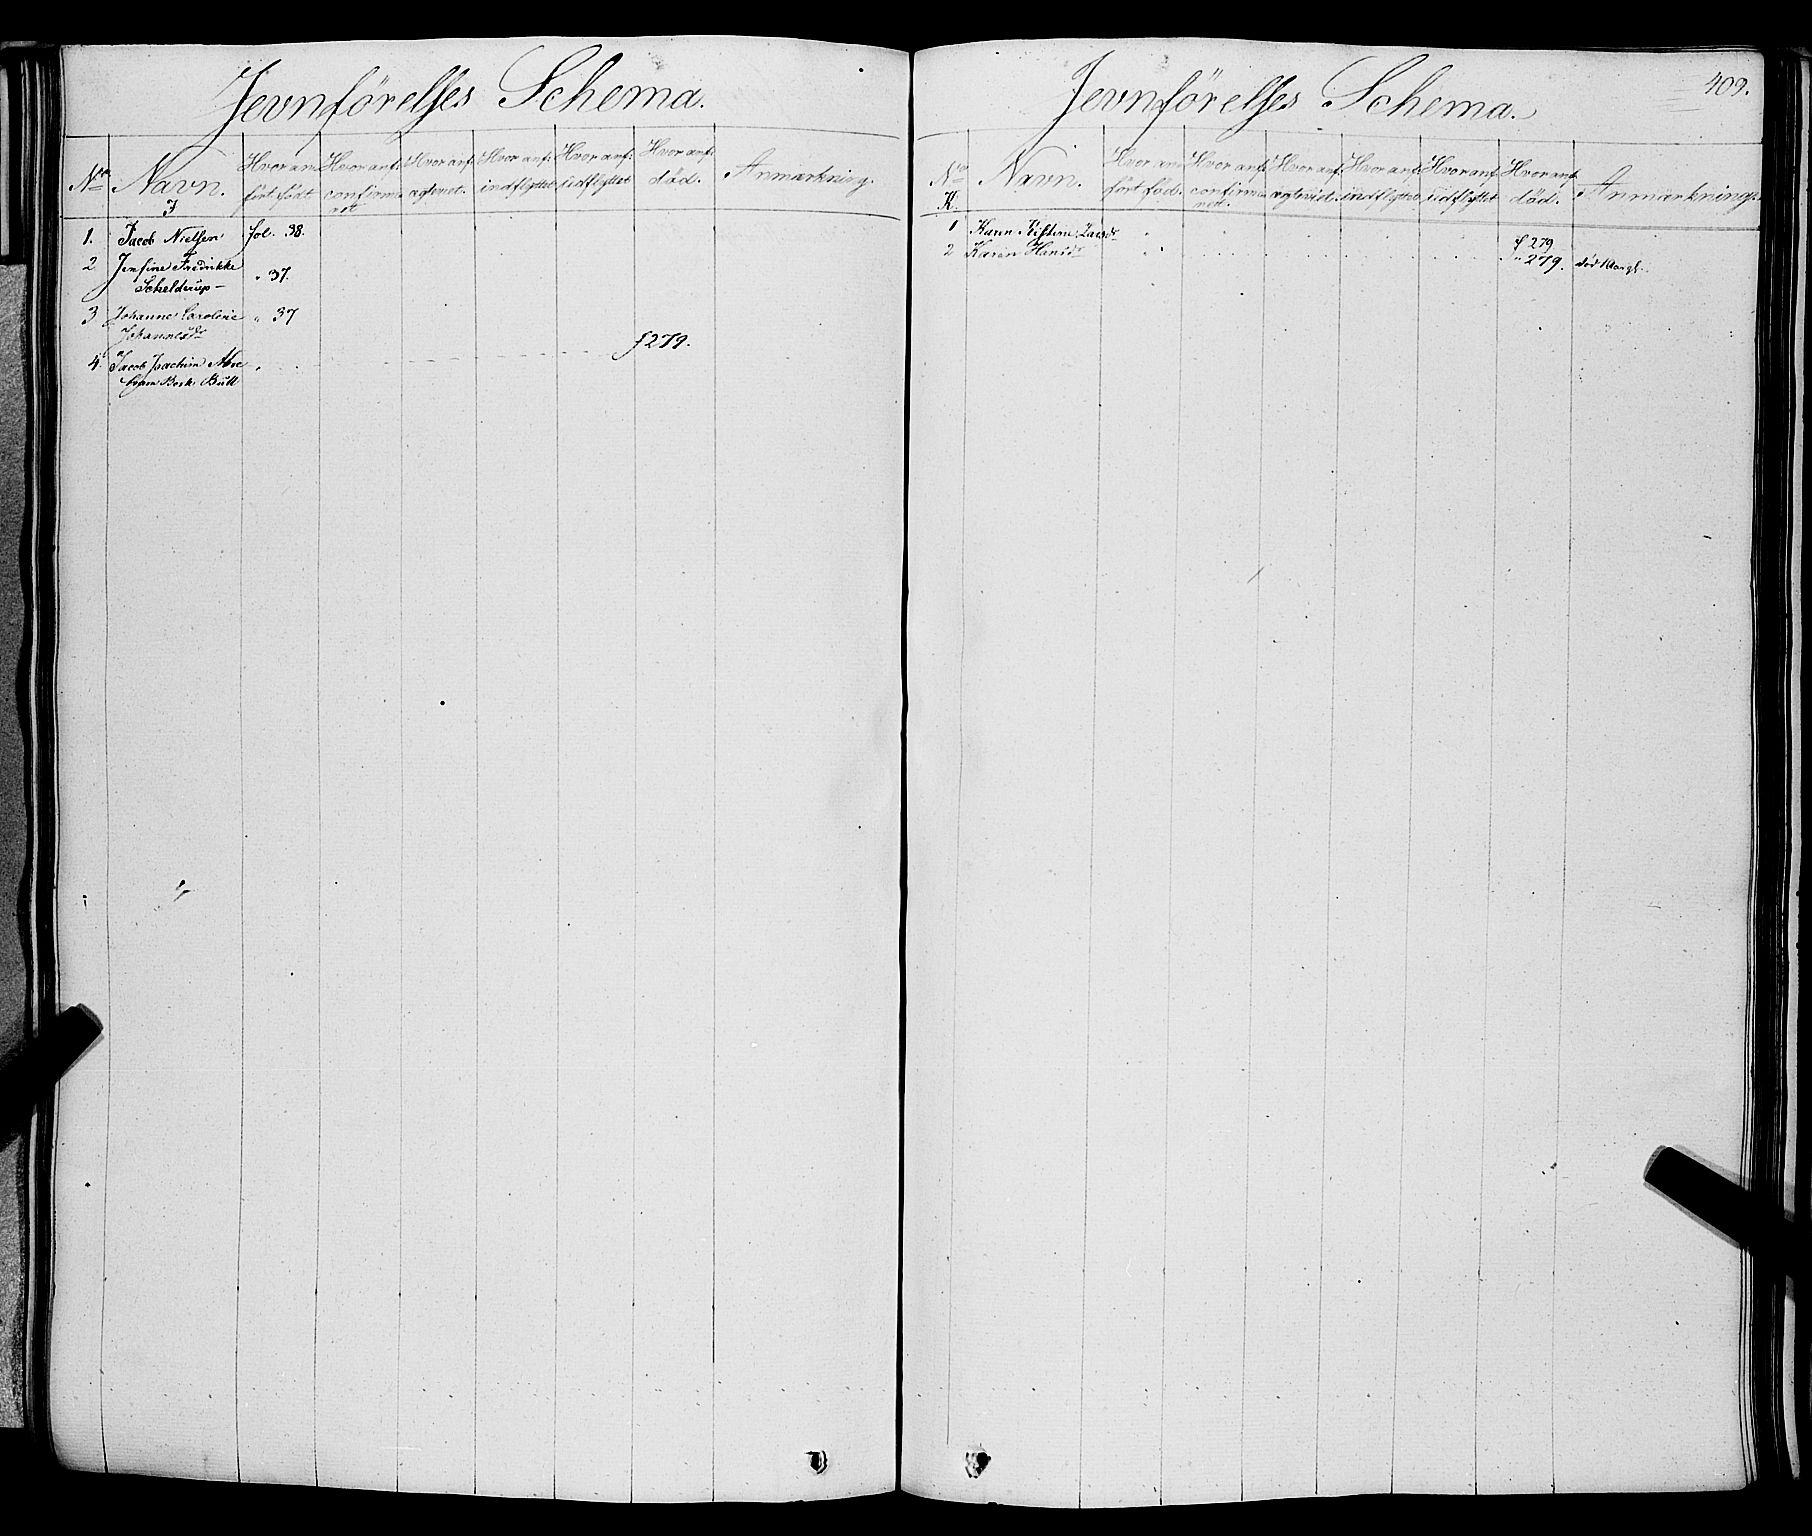 Jevnførelses Schema.
No Navn. Hvor anført födt Hvor anf: confirmeret Hvor anf: egteviet. Hvor anf: indflyttet Hvor anf: udflyttet Hvor anf: död. Anmærkning.
J
1. Jacob Nielsen fol. 38.
2 Jensine Fredrikke
Schelderup- " 37.
3 Johanne Caroline " 37
Johannesdr
4. Jacob Joachim f 279.
Bull
409.
Jevnførelses Schema.
No Navn. Hvor anført föd. Hvor anf: confirmeret. Hvor anf: egteviet. Hvor anf: indflyttet Hvor anf: udflyttet Hvor anf: död. Anmærkning.
K.
1 Karen Kistine Larsdr f 279
2 Karen Hansdr " 279. död